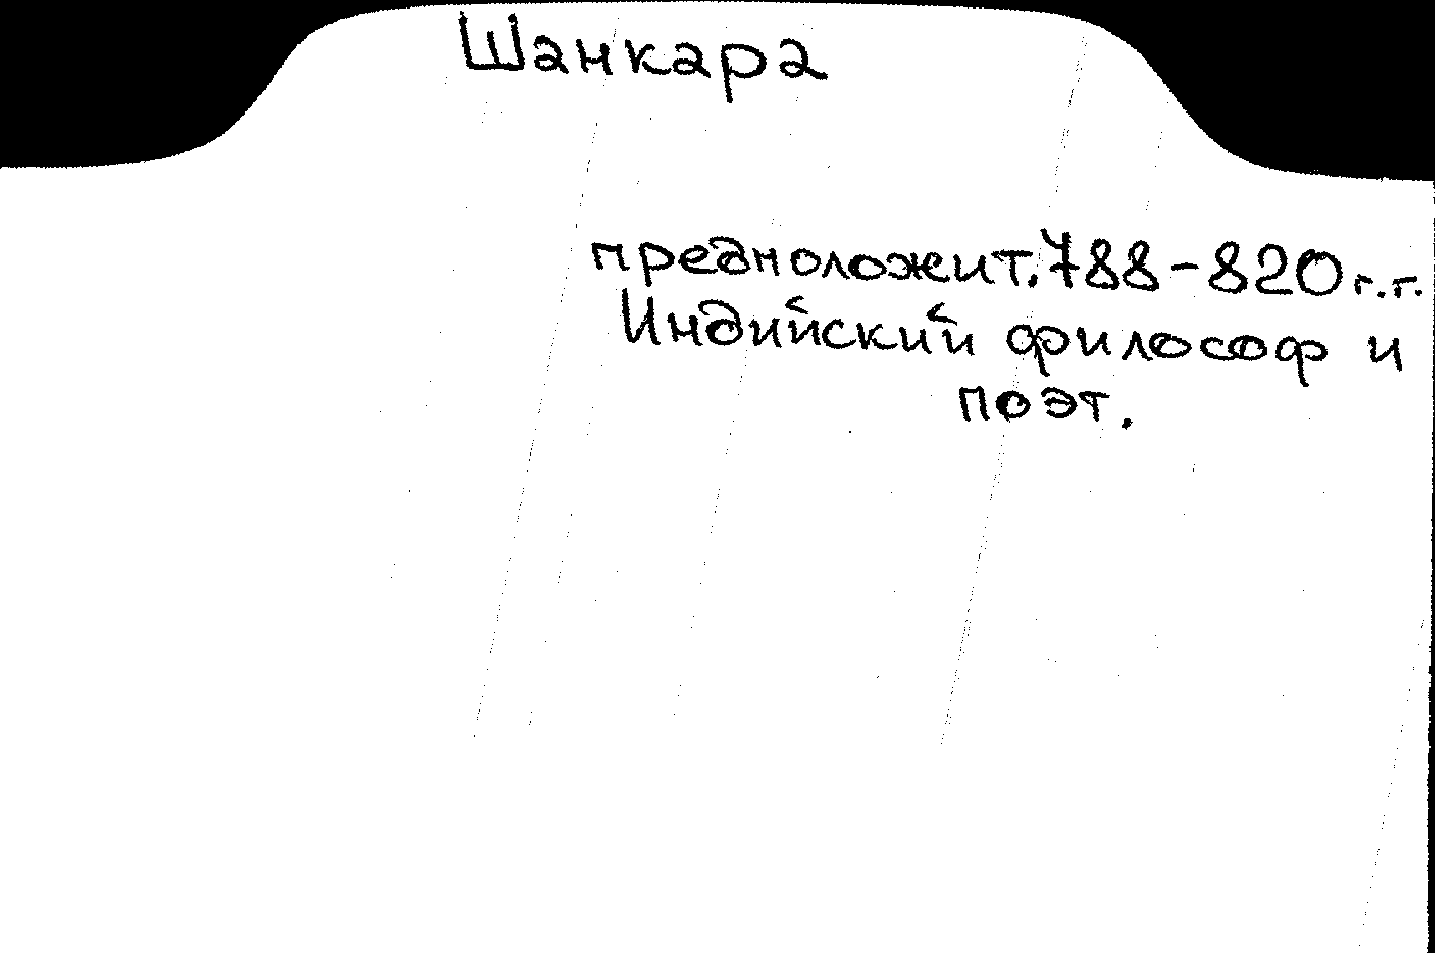 Шанкара
предположит. 788-820 г.г.
Индийский философ и
поэт.